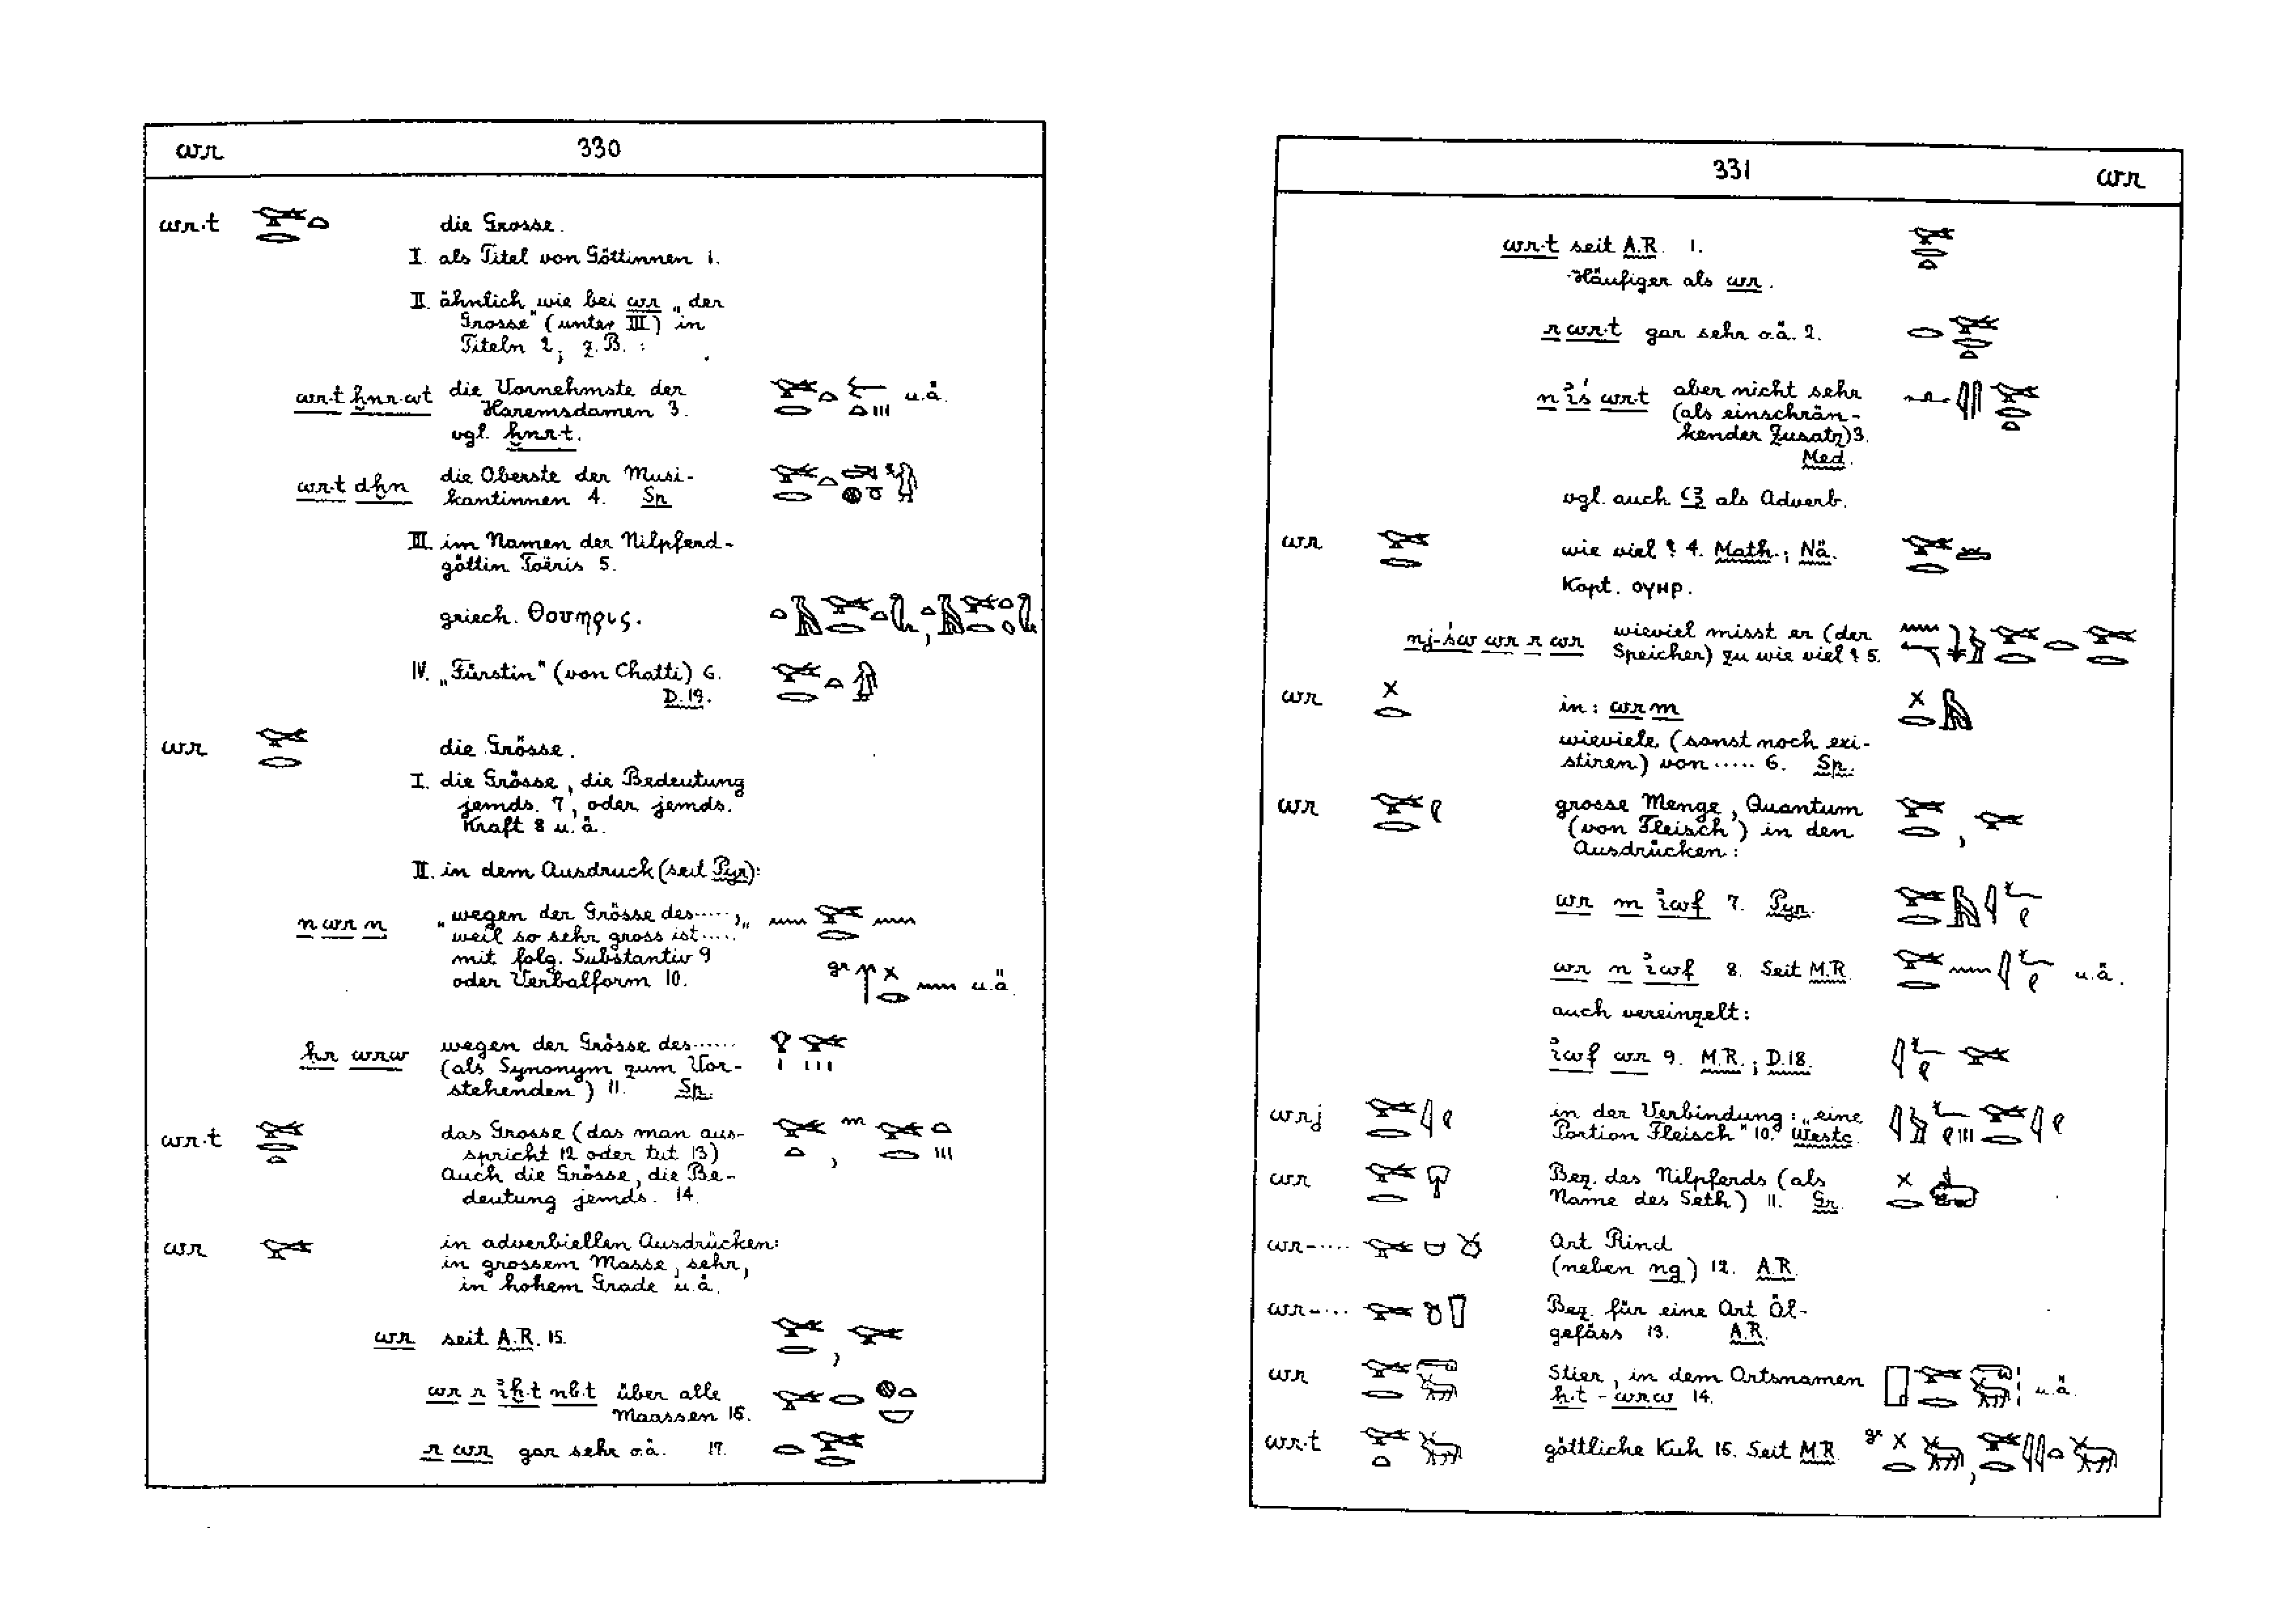 wr 330
wr.t die Grosse.
I. als Titel von Göttinnen 1.
II. ähnlich wie bei wr „der
Grosse" (unter III) in
Titeln 2, z.B. :
wr.t ḫnr.wt die Vornehmste der u.ä.
Haremsdamen 3.
vgl. ḫnr.t.
wr.t dḫn die Oberste der Musi-
kantinnen 4. Sp
III. im Namen der Nilpferd-
göttin Toëris 5.
griech. Θουηρις.
IV. „Fürstin" (von Chatti) 6.
D.19.
wr die Grösse.
I. die Grösse, die Bedeutung
jemds. 7, oder jemds.
Kraft 8 u.ä.
II. in dem Ausdruck (seit Pyr):
n wr n „wegen der Grösse des.....,"
„weil so sehr gross ist....."
mit folg. Substantiv 9
oder Verbalform 10. gr u.ä.
ḥr wrw wegen der Grösse des......
(als Synonym zum Vor-
stehenden) 11. Sp.
wr.t das Grosse (das man aus-
spricht 12 oder tut 13)
Auch die Grösse, die Be-
deutung jemds. 14.
wr in adverbiellen Ausdrücken:
in grossem Masse, sehr,
in hohem Grade u.ä.
wr seit A.R. 15.
wr r iḫ.t nb.t über alle
Maassen 16.
r wr gar sehr o.ä. 17.
331 wr
wr.t seit A.R. 1.
Häufiger als wr.
r wr.t gar sehr o.ä. 2.
n iś wr.t aber nicht sehr
(als einschrän-
kender Zusatz) 3.
Med.
vgl. auch ꜥꜣ als Adverb.
wr wie viel? 4. Math.; Nä.
Kopt. ⲟⲩⲏⲣ.
nj-św wr r wr wieviel misst er (der
Speicher) zu wie viel? 5.
wr in: wr m
wieviele (sonst noch exi-
stiren) von ..... 6. Sp.
wr grosse Menge, Quantum
(von Fleisch) in den
Ausdrücken:
wr m iwf 7. Pyr.
wr n iwf 8. Seit M.R. u.ä.
auch vereinzelt:
iwf wr 9. M.R.; D.18.
wrj in der Verbindung: „eine
Portion Fleisch" 10. Westc.
wr Bez. des Nilpferds (als
Name des Seth) 11. Gr.
wr-.... Art Rind
(neben ng) 12. A.R.
wr-.... Bez. für eine Art Öl-
gefäss 13. A.R.
wr Stier, in dem Ortsnamen
ḥ.t - wrw 14. u.ä.
wr.t göttliche Kuh 15. Seit M.R. gr